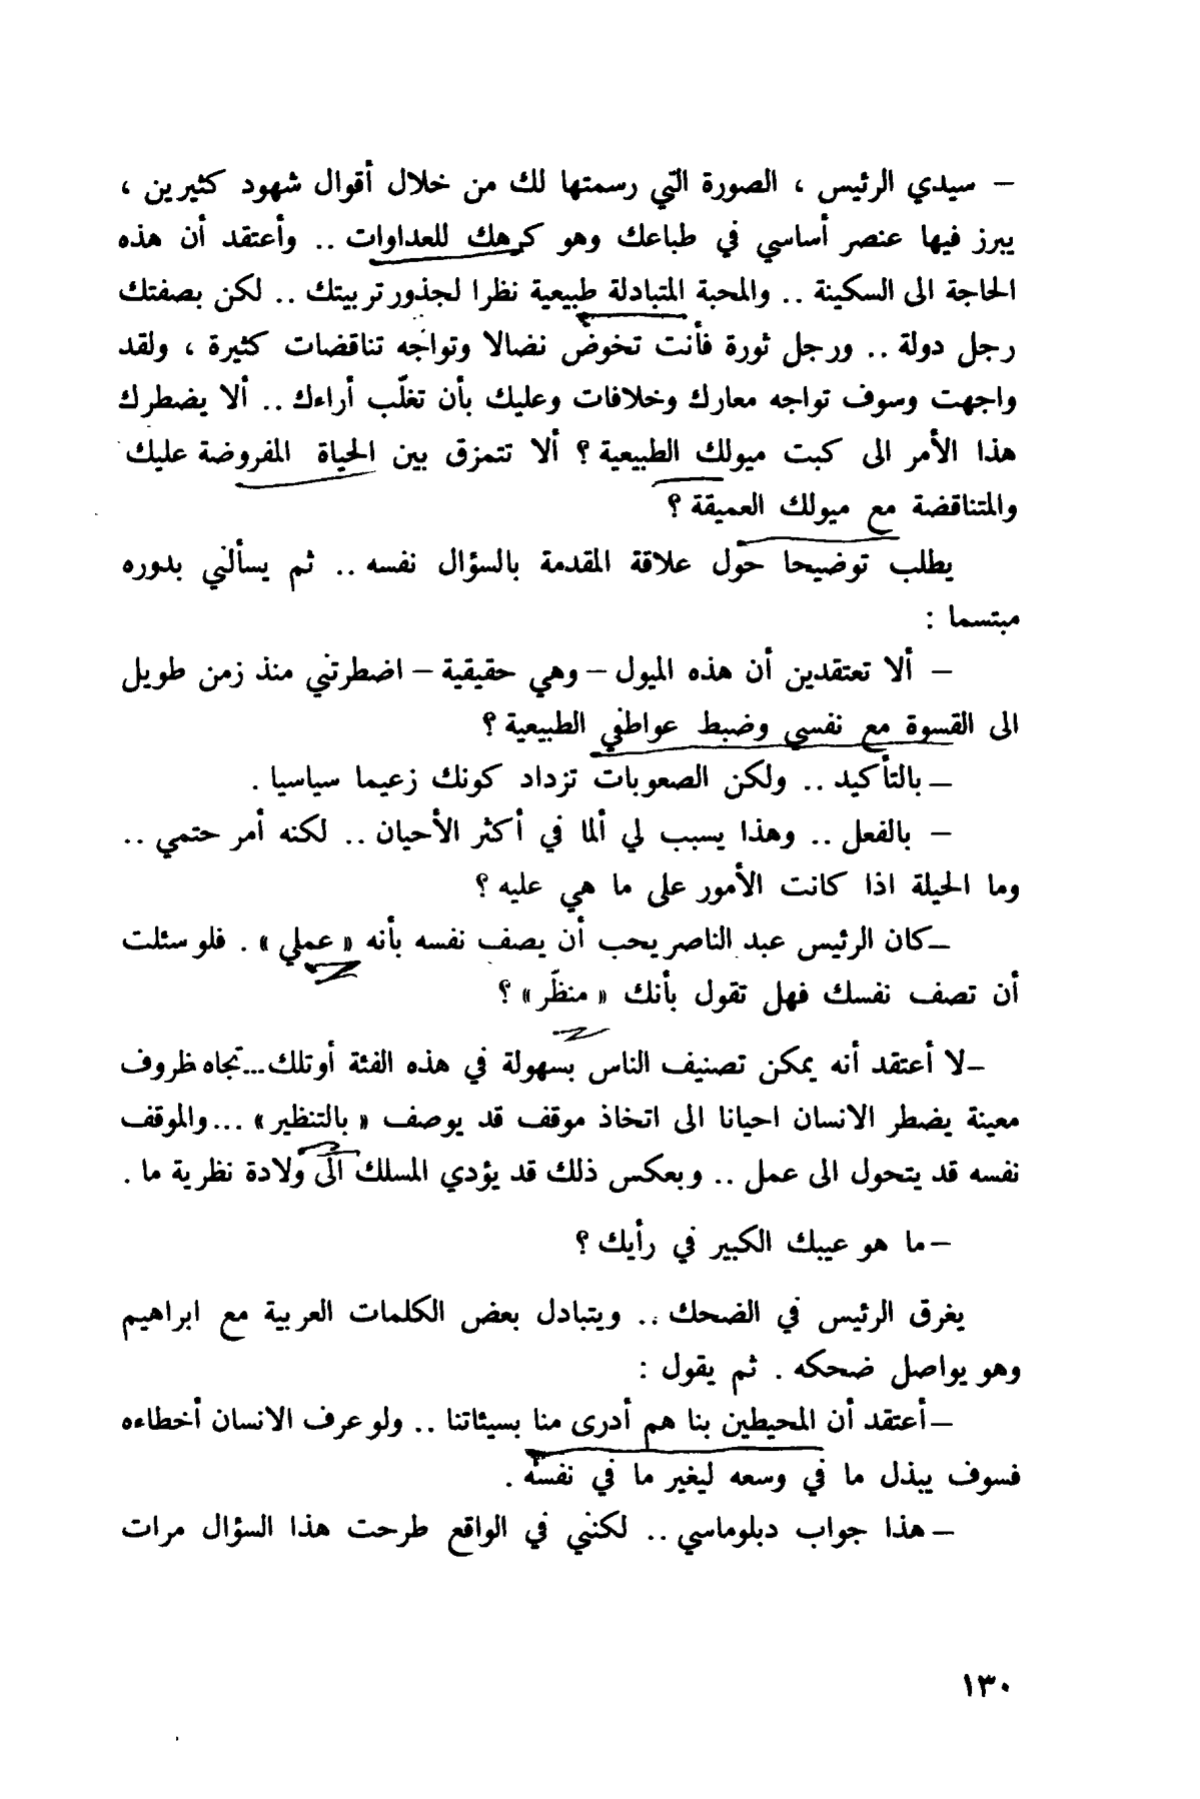 – سيدي الرئيس ، الصورة التي رسمتها لك من خلال أقوال شهود كثيرين ،
يبرز فيها عنصر أساسي في طباعك وهو كرهك للعداوات .. وأعتقد أن هذه
الحاجة الى السكينة .. والمحبة المتبادلة طبيعية نظرا لجذور تربيتك .. لكن بصفتك
رجل دولة .. ورجل ثورة فأنت تخوض نضالا وتواجه تناقضات كثيرة ، ولقد
واجهت وسوف تواجه معارك وخلافات وعليك بأن تغلّب أراءك .. ألا يضطرك
هذا الأمر الى كبت ميولك الطبيعية ؟ ألا تتمزق بين الحياة المفروضة عليك
والمتناقضة مع ميولك العميقة ؟
يطلب توضيحا حول علاقة المقدمة بالسؤال نفسه .. ثم يسألني بدوره
مبتسما :
– ألا تعتقدين أن هذه الميول – وهي حقيقية – اضطرتني منذ زمن طويل
الى القسوة مع نفسي وضبط عواطفي الطبيعية ؟
– بالتأكيد .. ولكن الصعوبات تزداد كونك زعيما سياسيا .
– بالفعل .. وهذا يسبب لي ألما في أكثر الأحيان .. لكنه أمر حتمي ..
وما الحيلة اذا كانت الأمور على ما هي عليه ؟
– كان الرئيس عبد الناصر يحب أن يصف نفسه بأنه « عملي » . فلو سئلت
أن تصف نفسك فهل تقول بأنك « منظّر » ؟
– لا أعتقد أنه يمكن تصنيف الناس بسهولة في هذه الفئة أو تلك ... تجاه ظروف
معينة يضطر الانسان احيانا الى اتخاذ موقف قد يوصف « بالتنظير » ... والموقف
نفسه قد يتحول الى عمل .. وبعكس ذلك قد يؤدي المسلك الى ولادة نظرية ما .
– ما هو عيبك الكبير في رأيك ؟
يغرق الرئيس في الضحك .. ويتبادل بعض الكلمات العربية مع ابراهيم
وهو يواصل ضحكه . ثم يقول :
– أعتقد أن المحيطين بنا هم أدرى منا بسيئاتنا .. ولو عرف الانسان أخطاءه
فسوف يبذل ما في وسعه ليغير ما في نفسه .
– هذا جواب دبلوماسي .. لكنني في الواقع طرحت هذا السؤال مرات
١٣٠